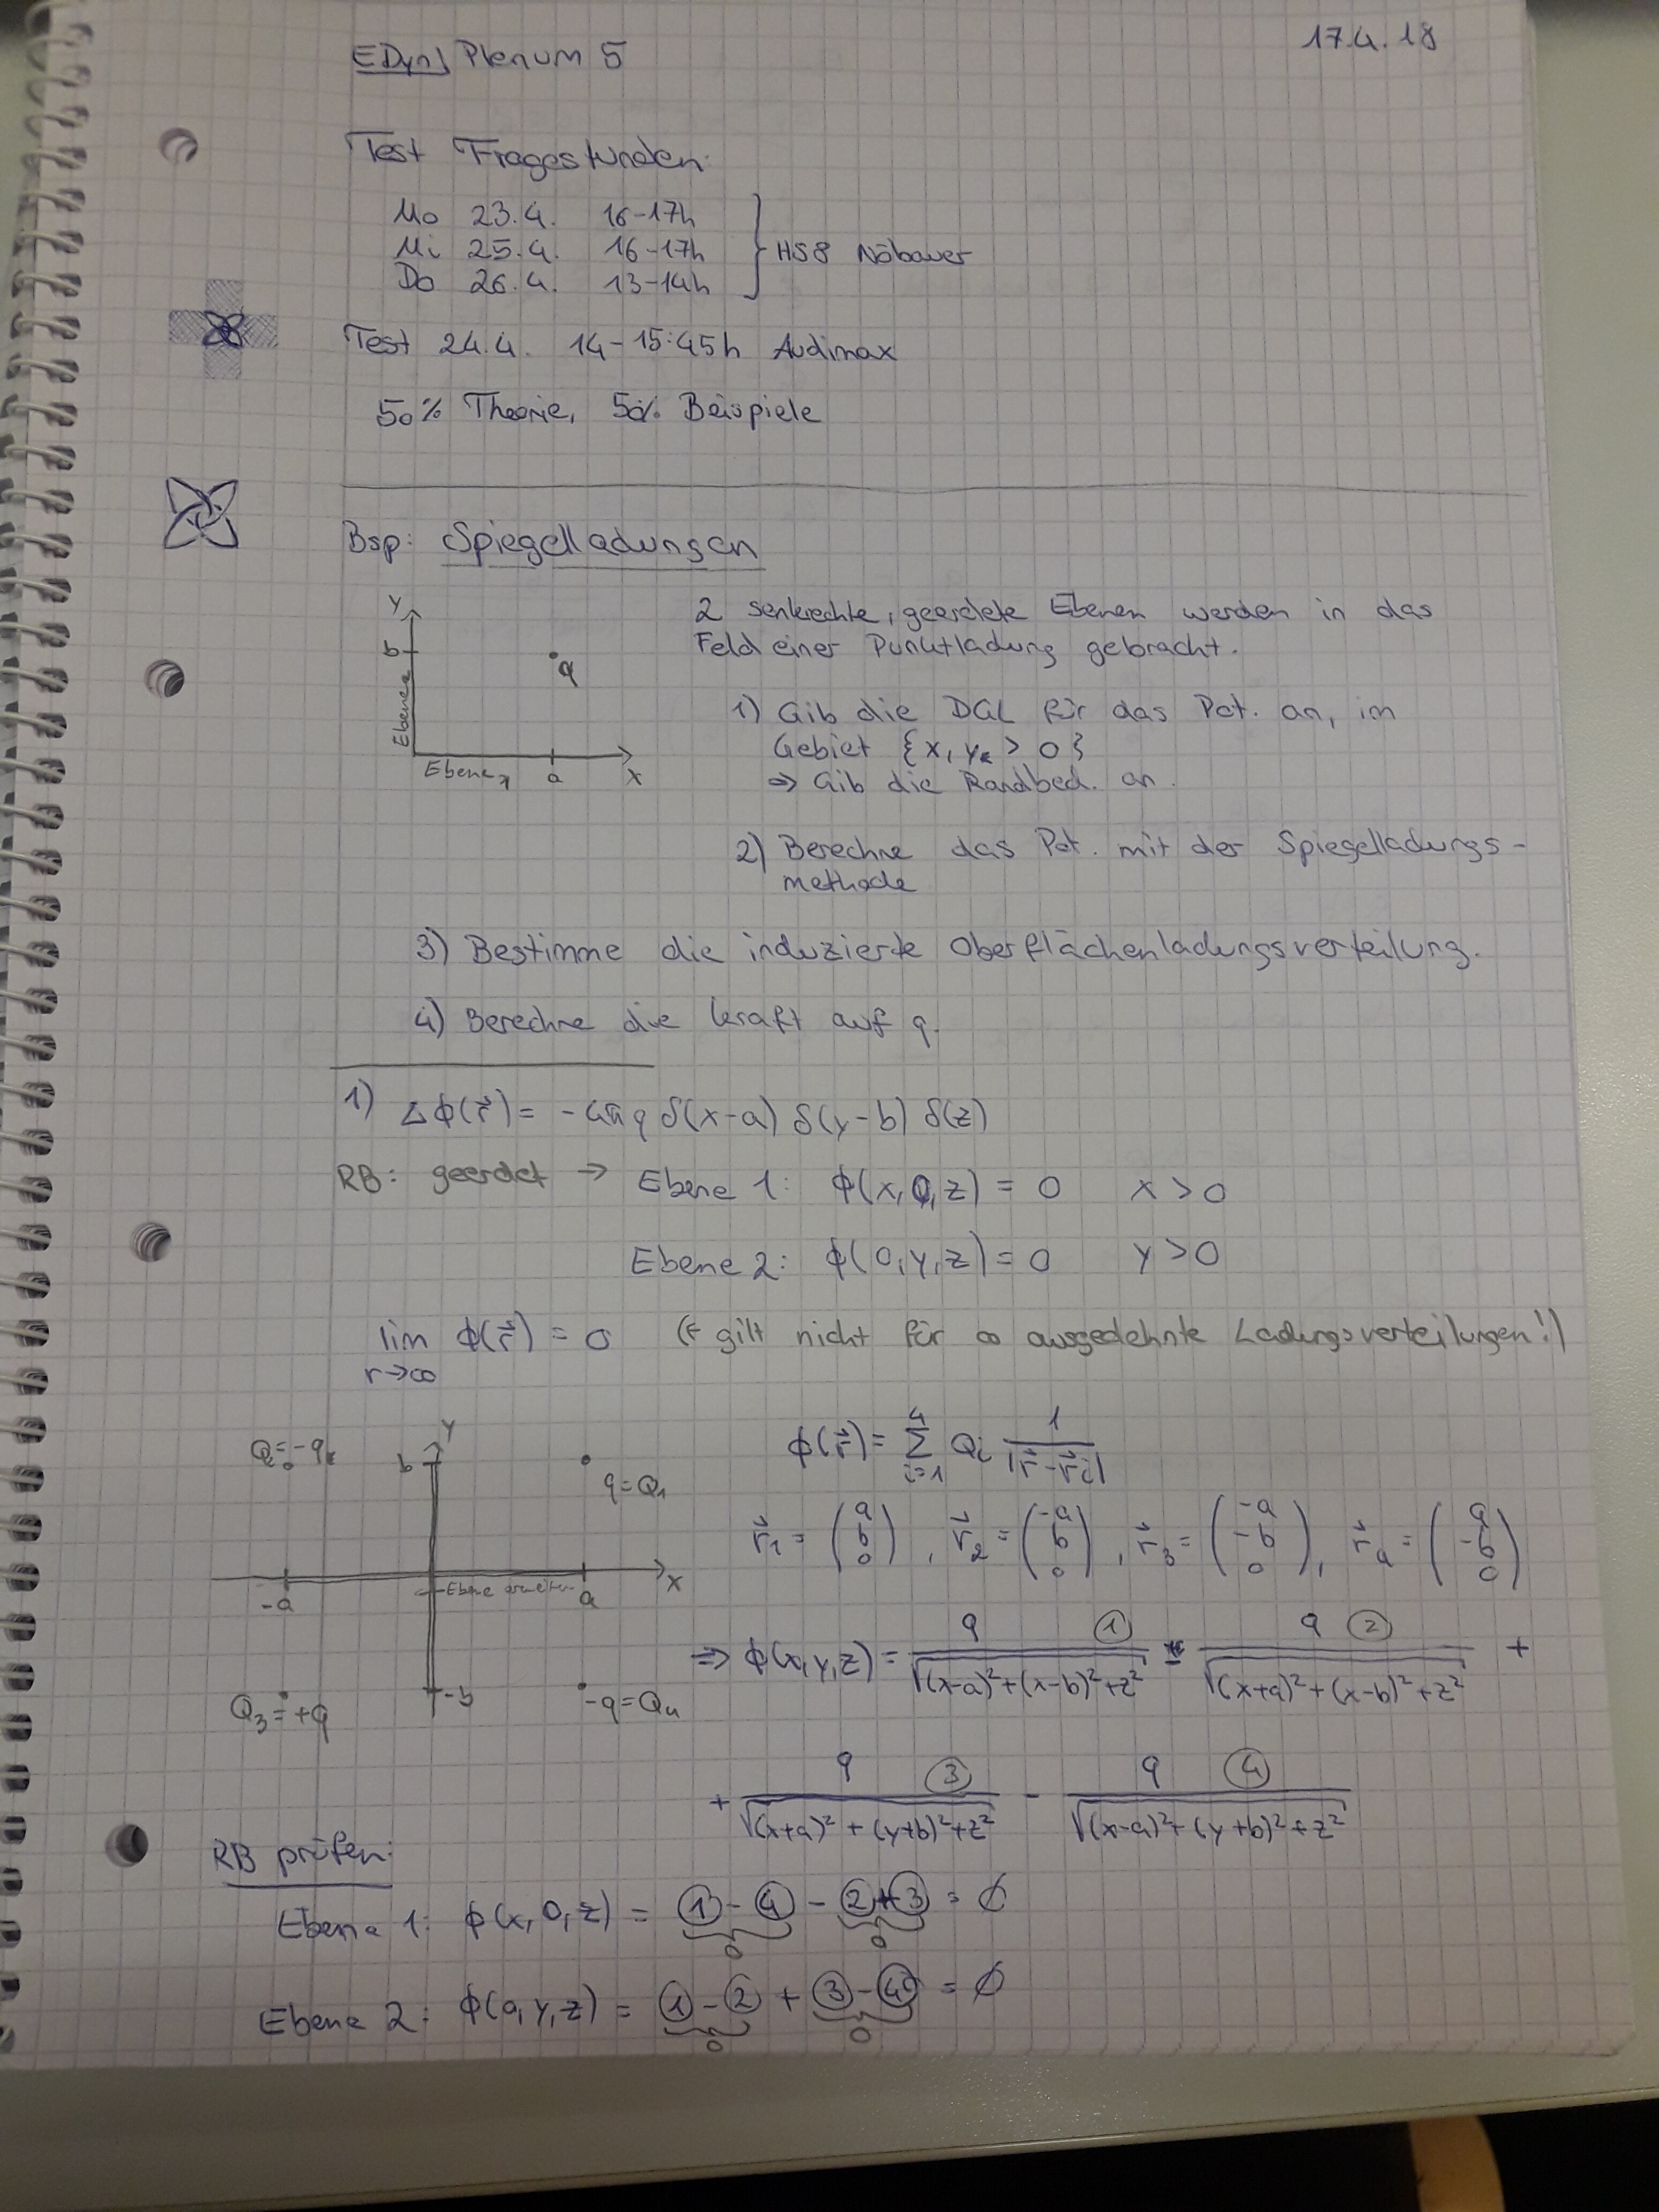 EDyn) Plenum 5
17.4.18
Test Fragestunden:
Mo 23.4. 16-17h
Mi 25.4. 16-17h } HS8 Nöbauer
Do 26.4. 13-14h
Test 24.4. 14-15:45h Audimax
50% Theorie, 50% Beispiele
Bsp: Spiegelladungen
y
b
q
Ebene 2
Ebene 1
a
x
2 senkrechte, geerdete Ebenen werden in das
Feld einer Punktladung gebracht.
1) Gib die DGL für das Pot. an, im
Gebiet {x, y > 0}
⇒ Gib die Randbed. an.
2) Berechne das Pot. mit der Spiegelladungs-
methode
3) Bestimme die induzierte Oberflächenladungsverteilung.
4) Berechne die Kraft auf q.
1) Δϕ(r⃗) = -4πq δ(x-a) δ(y-b) δ(z)
RB: geerdet → Ebene 1: ϕ(x,0,z) = 0 x > 0
Ebene 2: ϕ(0,y,z) = 0 y > 0
lim ϕ(r⃗) = 0 (← gilt nicht für ∞ ausgedehnte Ladungsverteilungen!)
r→∞
Q=-q
b
y
q=Q₁
-a
a
x
-b
Q₃=+q
-q=Q₄
ϕ(r⃗) = Σ_{i=1}^{4} Qᵢ 1/|r⃗-r⃗ᵢ|
r⃗₁ = (a b 0), r⃗₂ = (-a b 0), r⃗₃ = (-a -b 0), r⃗₄ = (a -b 0)
⇒ ϕ(x,y,z) = q ①/√((x-a)²+(x-b)²+z²) - q ②/√((x+a)²+(x-b)²+z²) +
+ q ③/√((x+a)²+(y+b)²+z²) - q ④/√((x-a)²+(y+b)²+z²)
RB prüfen:
Ebene 1: ϕ(x,0,z) = ① - ④ - ② + ③ = ∅
0 0
Ebene 2: ϕ(0,y,z) = ① - ② + ③ - ④ = ∅
0 0